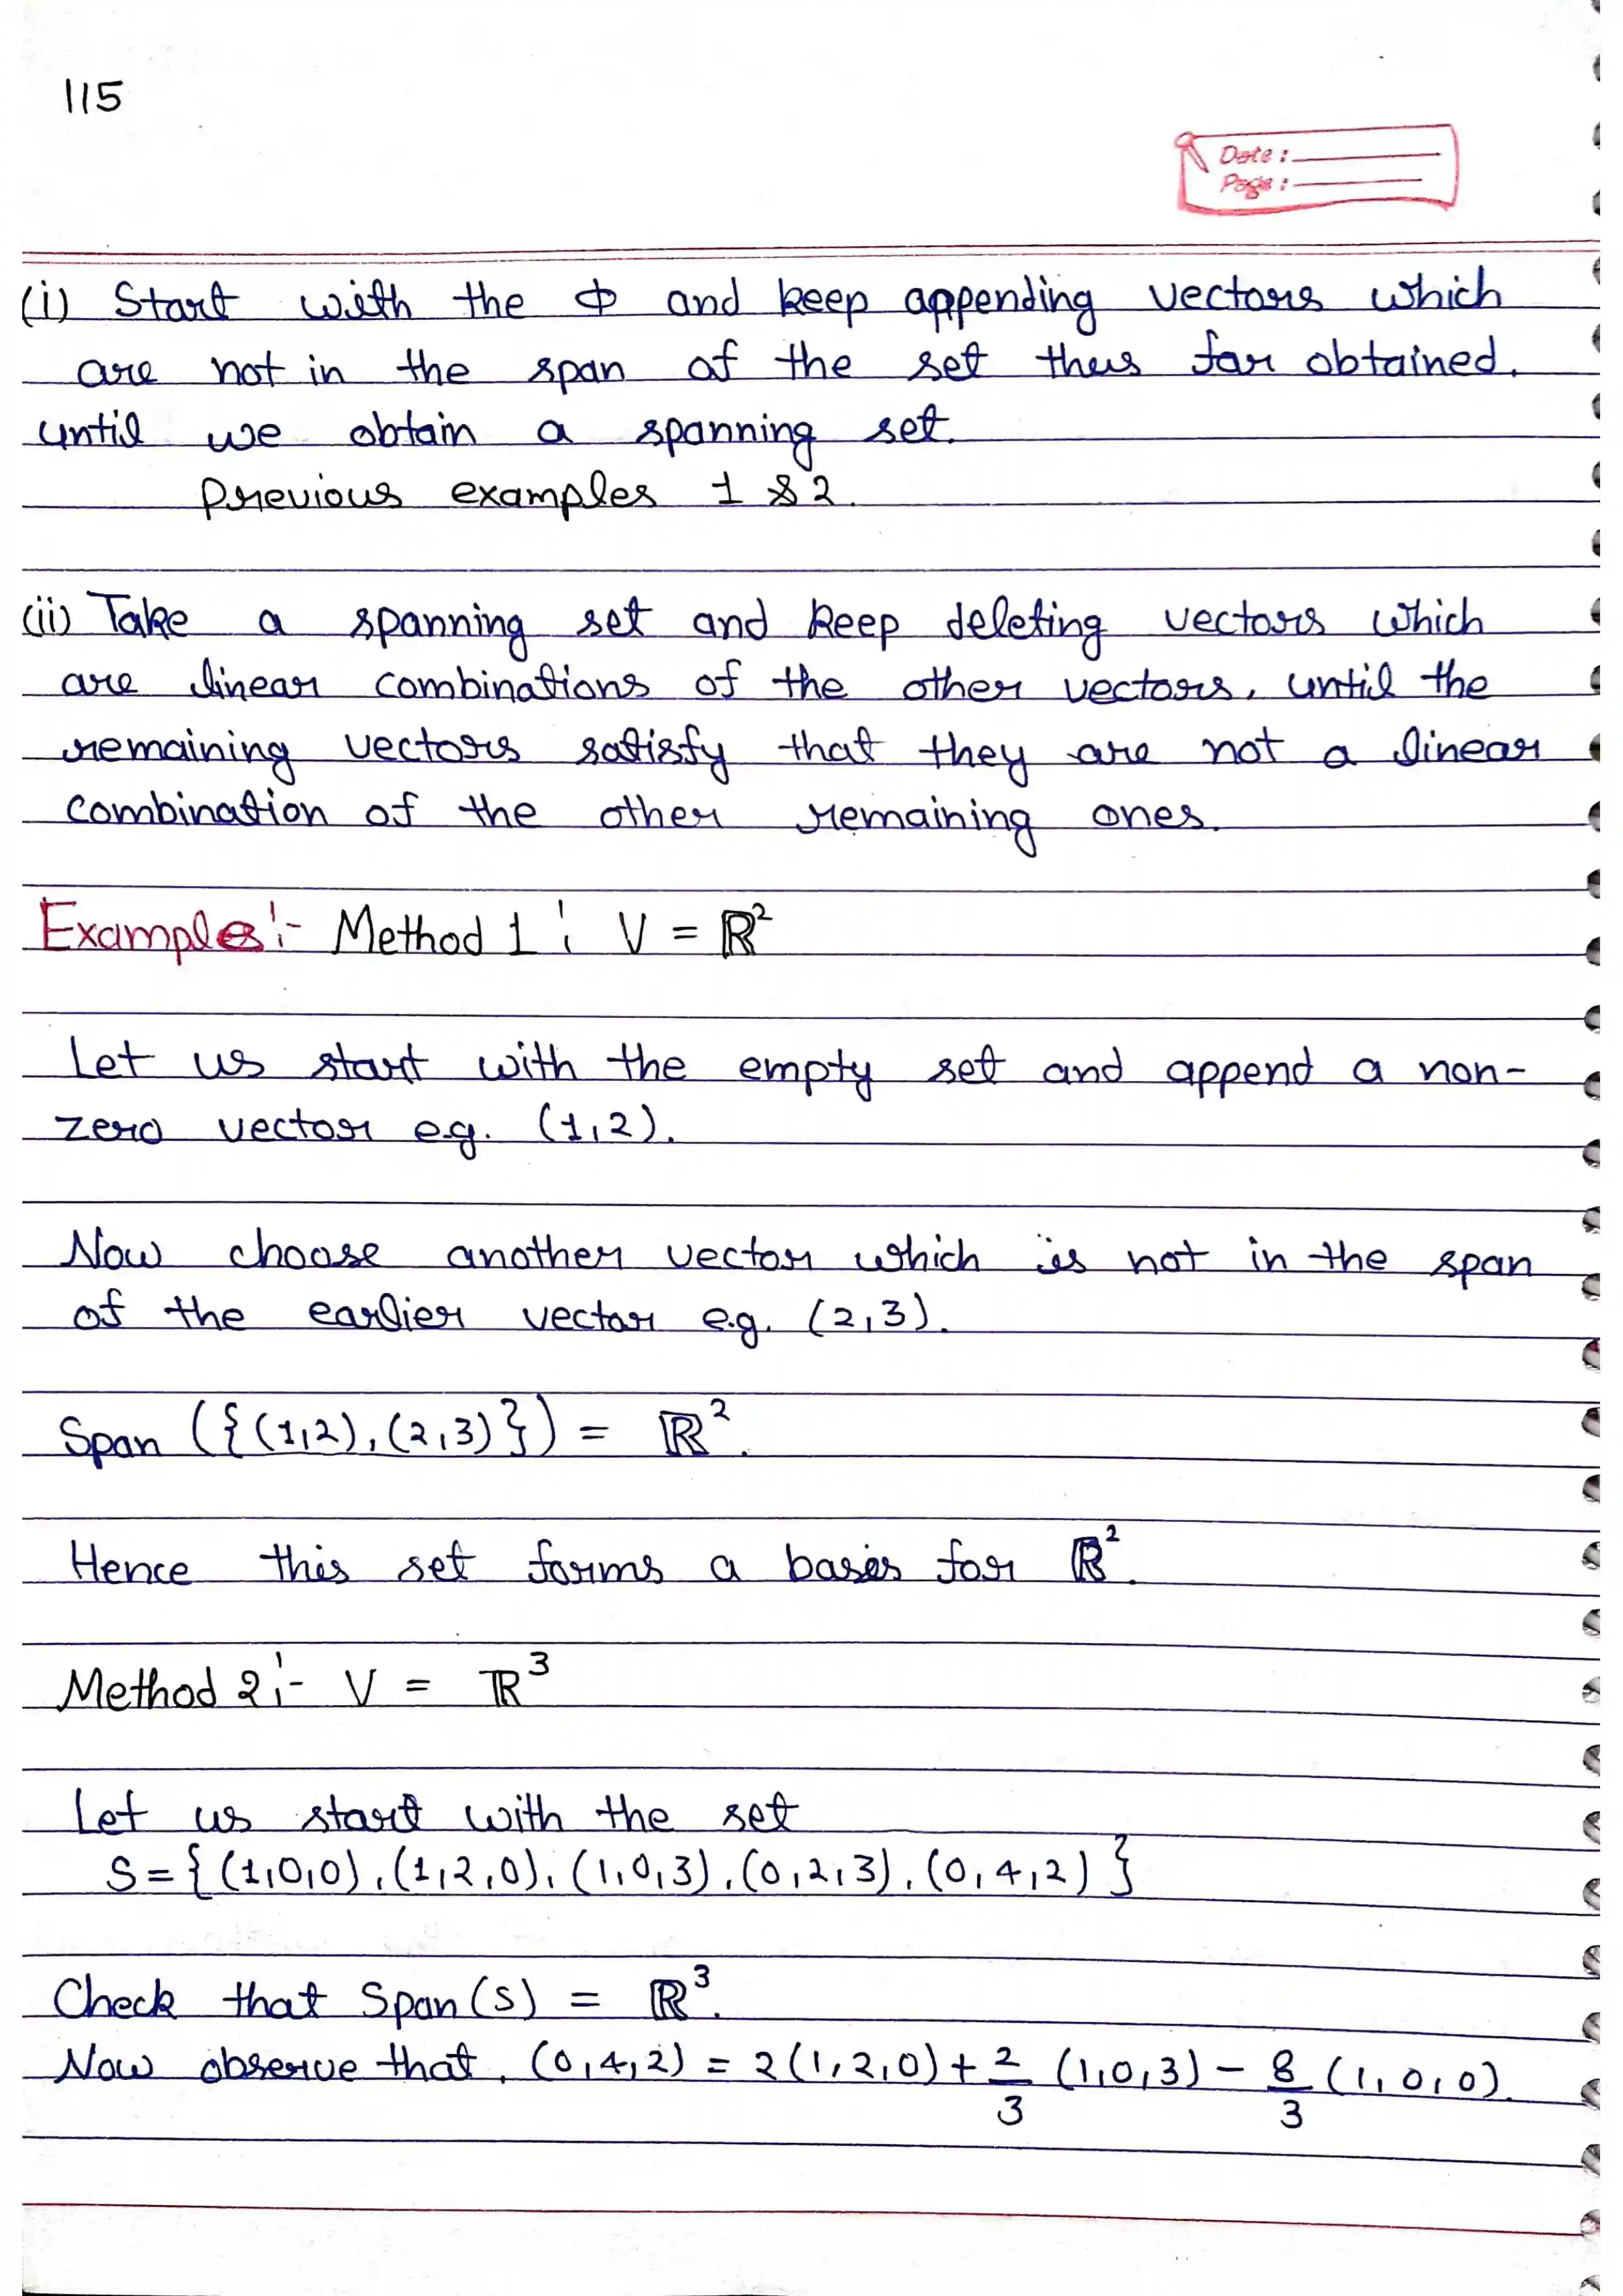 115
Date :
Page :
(i) Start with the Φ and keep appending vectors which
are not in the span of the set thus far obtained.
until we obtain a spanning set.
Previous examples 1 & 2.
(ii) Take a spanning set and keep deleting vectors which
are linear combinations of the other vectors, until the
remaining vectors satisfy that they are not a linear
combination of the other remaining ones.
Examples:- Method 1 : V = ℝ²
Let us start with the empty set and append a non-
zero vector e.g. (1,2).
Now choose another vector which is not in the span
of the earlier vector e.g. (2,3).
Span ({(1,2), (2,3)}) = ℝ².
Hence this set forms a basis for ℝ².
Method 2:- V = ℝ³
Let us start with the set
S = { (1,0,0), (1,2,0), (1,0,3), (0,2,3), (0,4,2) }
Check that Span(S) = ℝ³.
Now observe that, (0,4,2) = 2(1,2,0) + 2/3 (1,0,3) - 8/3 (1,0,0).